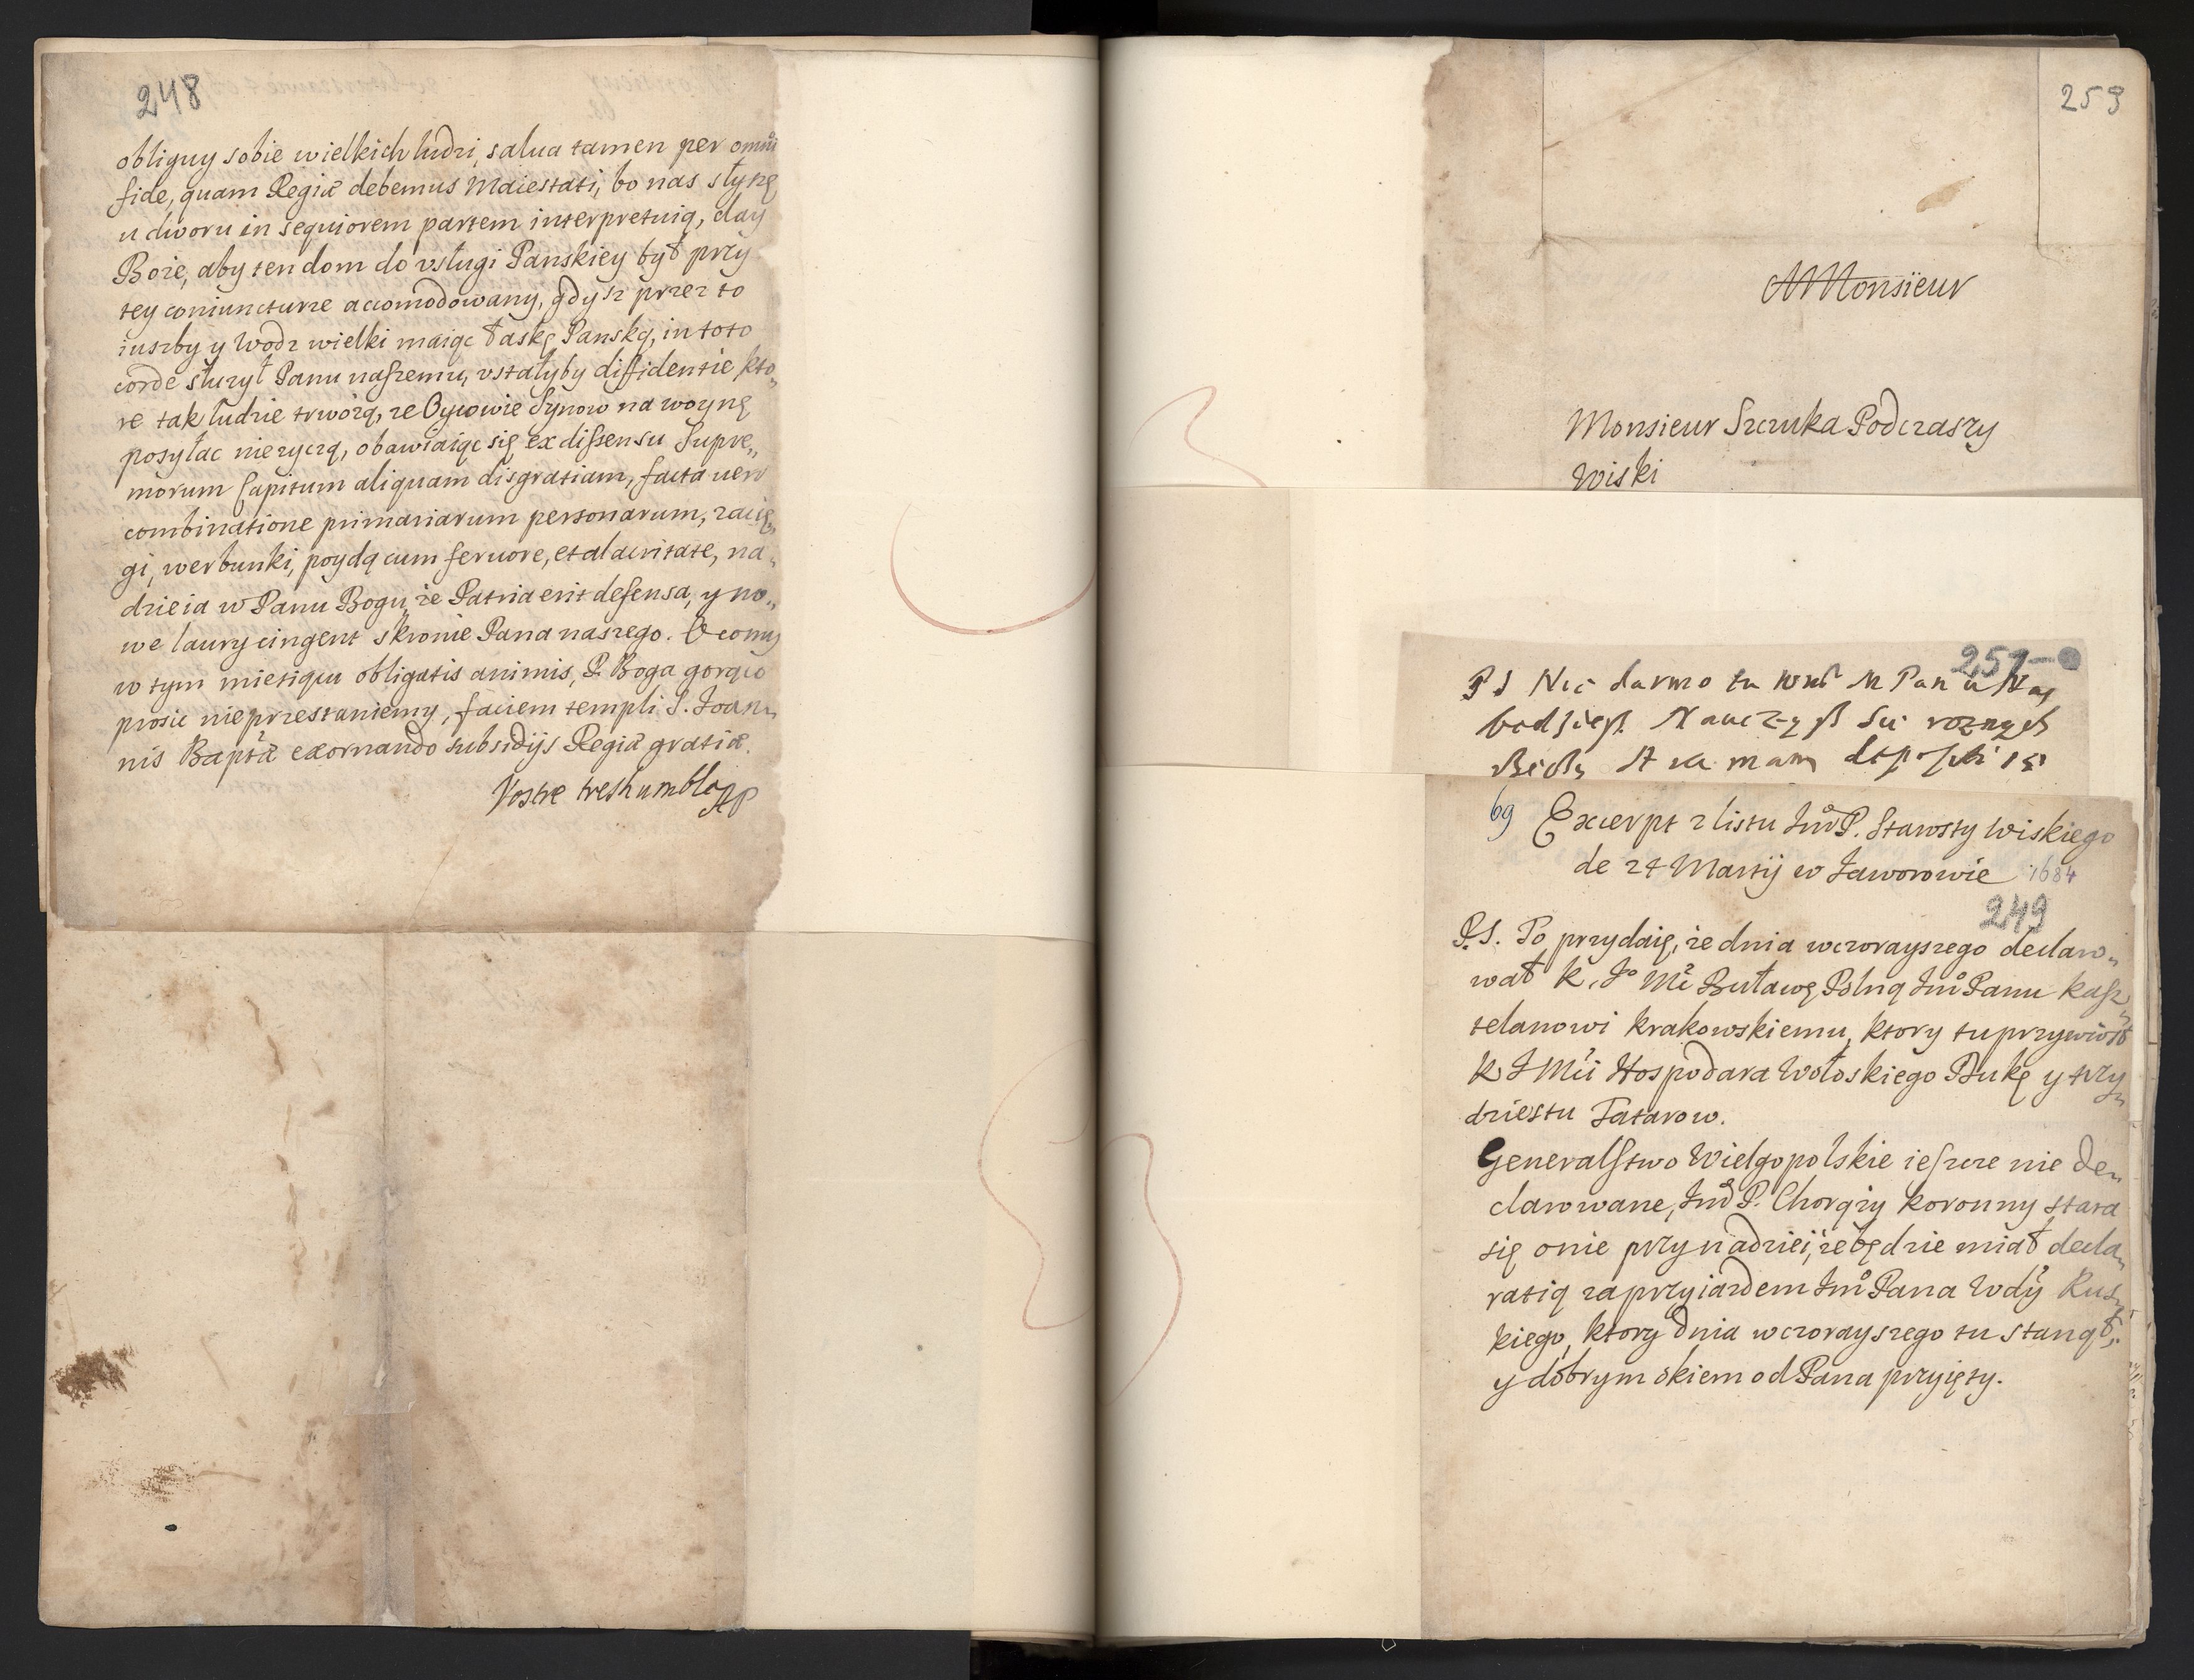 248
obliguy sobie wielkich ludzi, salua tamen per omnia
fide, quam Regiæ debemus Maiestati, bo nas słyszę
u dworu in sequiorem partem interpretuią, day
Boże, aby ten dom do vsługi Panskiey był przy
tey coniuncturze accomodowany, gdysz przez to
iuszby y Wodz wielki maiąc łaskę Panską, in toto
corde służył Panu naszemu, vstałyby diffidentie kto„
re tak ludzie trwożą, że Oycowie Synow na woynę
posyłac nieżyczą, obawiaiąc się ex dissensu Supre„
morum Capitum aliquam disgratiam, facta vero
combinatione primariarum personarum, zacią„
gi, werbunki, poydą cum feruore, et alacritate, na„
dzieia w Panu Bogu, że Patria erit defensa, y no„
we laury cingent skronie Pana naszego. O co my
w tym mieyscu obligatis animis, P. Boga gorąco
prosic nieprzestaniemy, faciem templi S. Joan„
nis Baptæ exornando subsidijs Regiæ gratiæ.
Vostre treshumble
259
Monsieur
Monsieur Szczuka Podczaszy
Wiski
257
PS Nie darmo tu M Pan u Nas
bedziesz Nauczysz sie roznych
mam
69 Excerpt z listu Jmo P. Starosty Wiskiego
de 24 Martij w Jaworowie 1684
249
P.S. To przydaię, że dnia wczorayszego declaro„
wał K. Jo Mć Buławę Polną Jmo Panu Kasz„
telanowi Krakowskiemu, ktory tu przywiozł
K J Mći Hospodara Wołoskiego Dukę y trzy„
dziestu Tatarow.
Generalstwo Wielgopolskie ieszcze nie de„
clarowane, Jmo P. Chorąży Koronny stara
się onie przy nadziei, że będzie miał decla„
ratią za przyiazdem Jmo Pana Wdy Rus„
kiego, ktory dnia wczorayszego tu stanął„
y dobrym okiem od Pana przyięty.